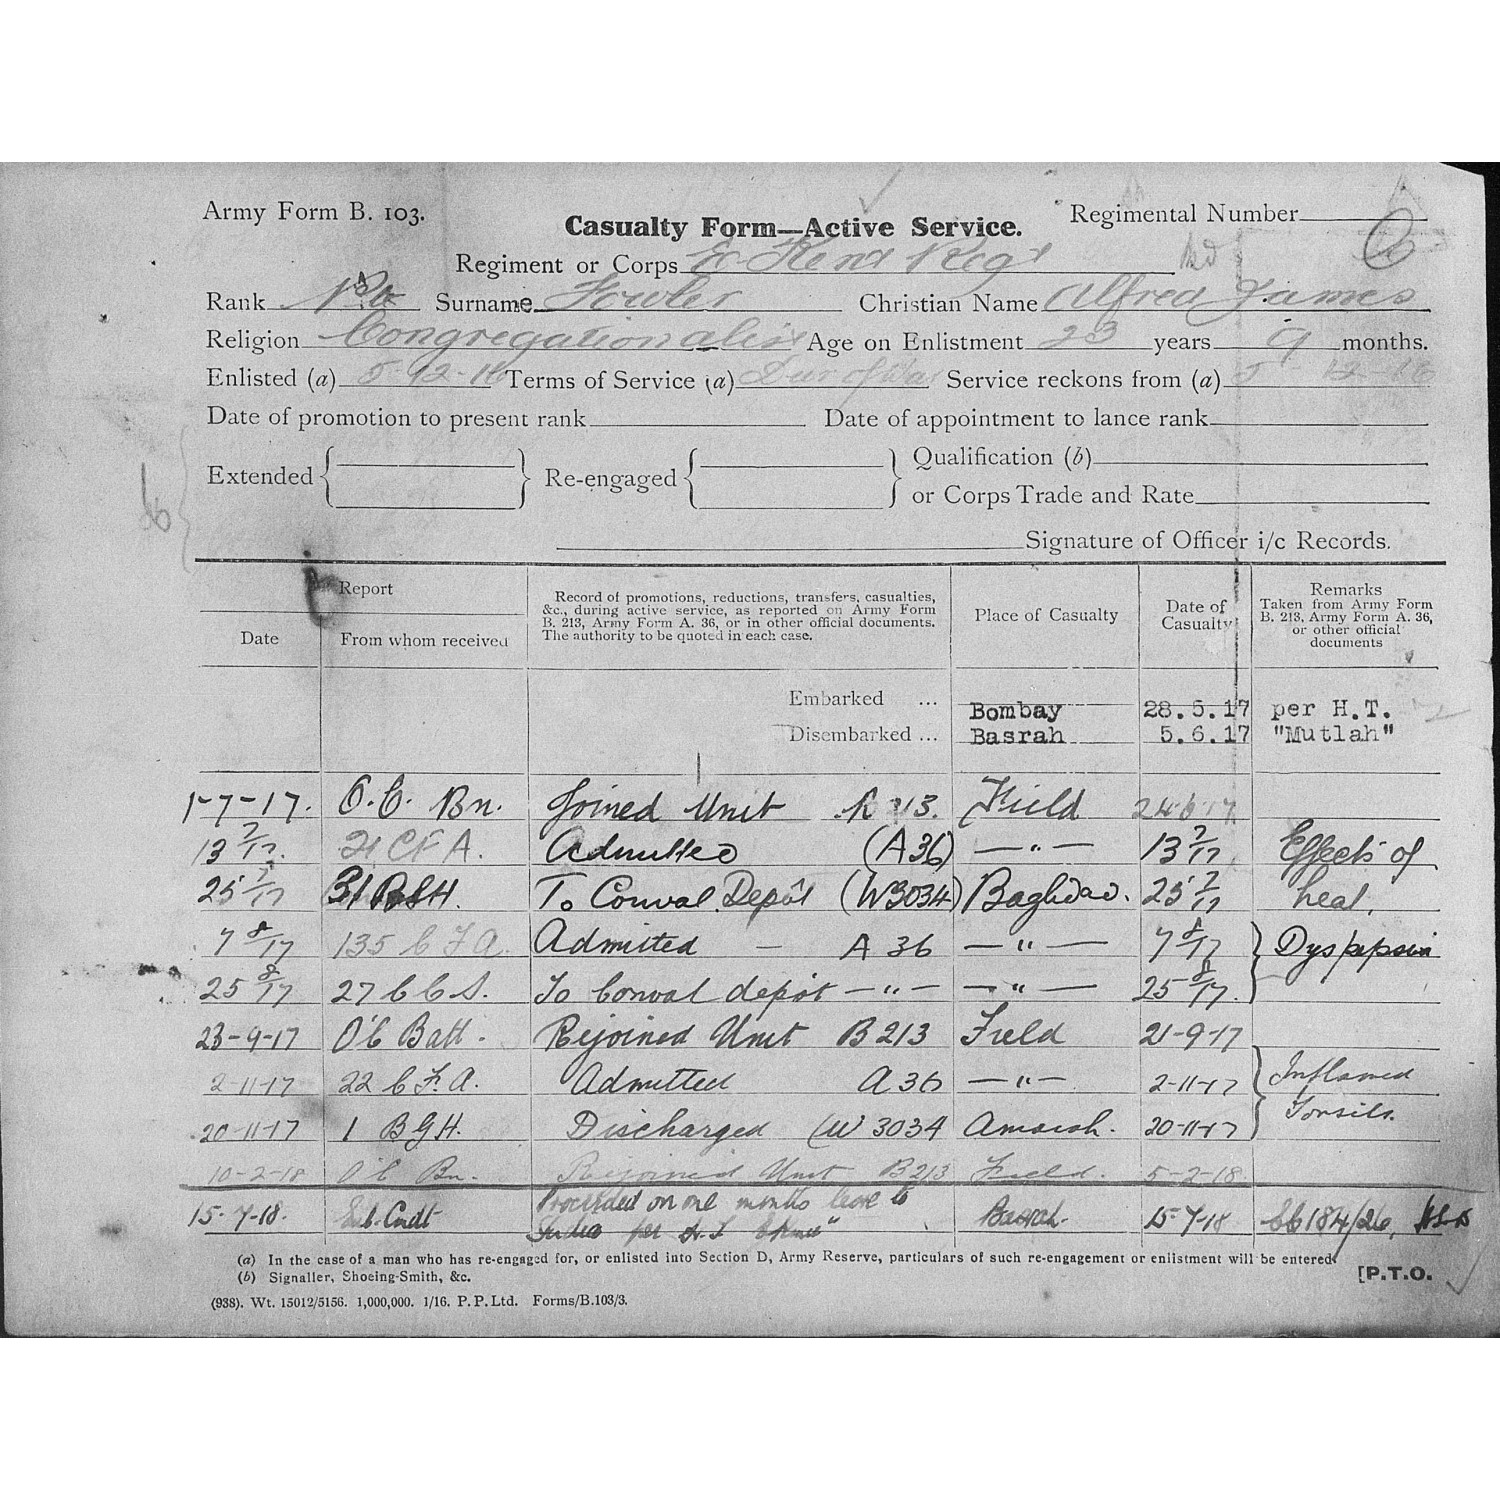 Army Form B. 103.
Casualty Form—Active Service.
Regimental Number
Regiment or Corps E. Kent Regt
Rank Pte Surname Fowler Christian Name Alfred James
Religion Congregationalist Age on Enlistment 23 years 9 months.
Enlisted (a) 5-12-16 Terms of Service (a) Dur of War Service reckons from (a) 5-12-16
Date of promotion to present rank Date of appointment to lance rank
Extended Re-engaged Qualification (b)
or Corps Trade and Rate
Signature of Officer i/c Records.
Report
Date From whom received
Record of promotions, reductions, transfers, casualties,
&c., during active service, as reported on Army Form
B. 213, Army Form A. 36, or in other official documents.
The authority to be quoted in each case.
Place of Casualty
Date of
Casualty
Remarks
Taken from Army Form
B. 213, Army Form A. 36,
or other official
documents
Embarked ... Bombay 28.5.17 per H.T.
Disembarked ... Basrah 5.6.17 "Mutlah"
1-7-17. O.C. Bn. Joined Unit Field 24-6-17
13 7/17. 21 CFA. Admitted (A36) —"— 13 7/17 Effects of
25 7/17 31 BSH. To Conval. Depôt (W3034) Baghdad. 25 7/17 heat.
7 8/17 135 C F A. Admitted — A 36 —"— 7 8/17 Dyspepsia
25 8/17 27 C C S. To Conval depôt —"— —"— 25 8/17.
23-9-17 O'C Batt. Rejoined Unit B 213 Field 21-9-17
2-11-17 22 C F. A. Admitted A 36 —"— 2-11-17 Inflamed
20-11-17 1 BGH. Discharged (W 3034 Amarah. 20-11-17 Tonsils.
10-2-18 O'C Bn. Rejoined Unit B213 Field. 5-2-18
15-7-18. Emb. Cmdt Proceeded on one months leave to Basrah. 15-7-18
India per H.T.
(a) In the case of a man who has re-engaged for, or enlisted into Section D, Army Reserve, particulars of such re-engagement or enlistment will be entered.
(b) Signaller, Shoeing-Smith, &c.
[P.T.O.
(938). Wt. 15012/5156. 1,000,000. 1/16. P.P.Ltd. Forms/B.103/3.